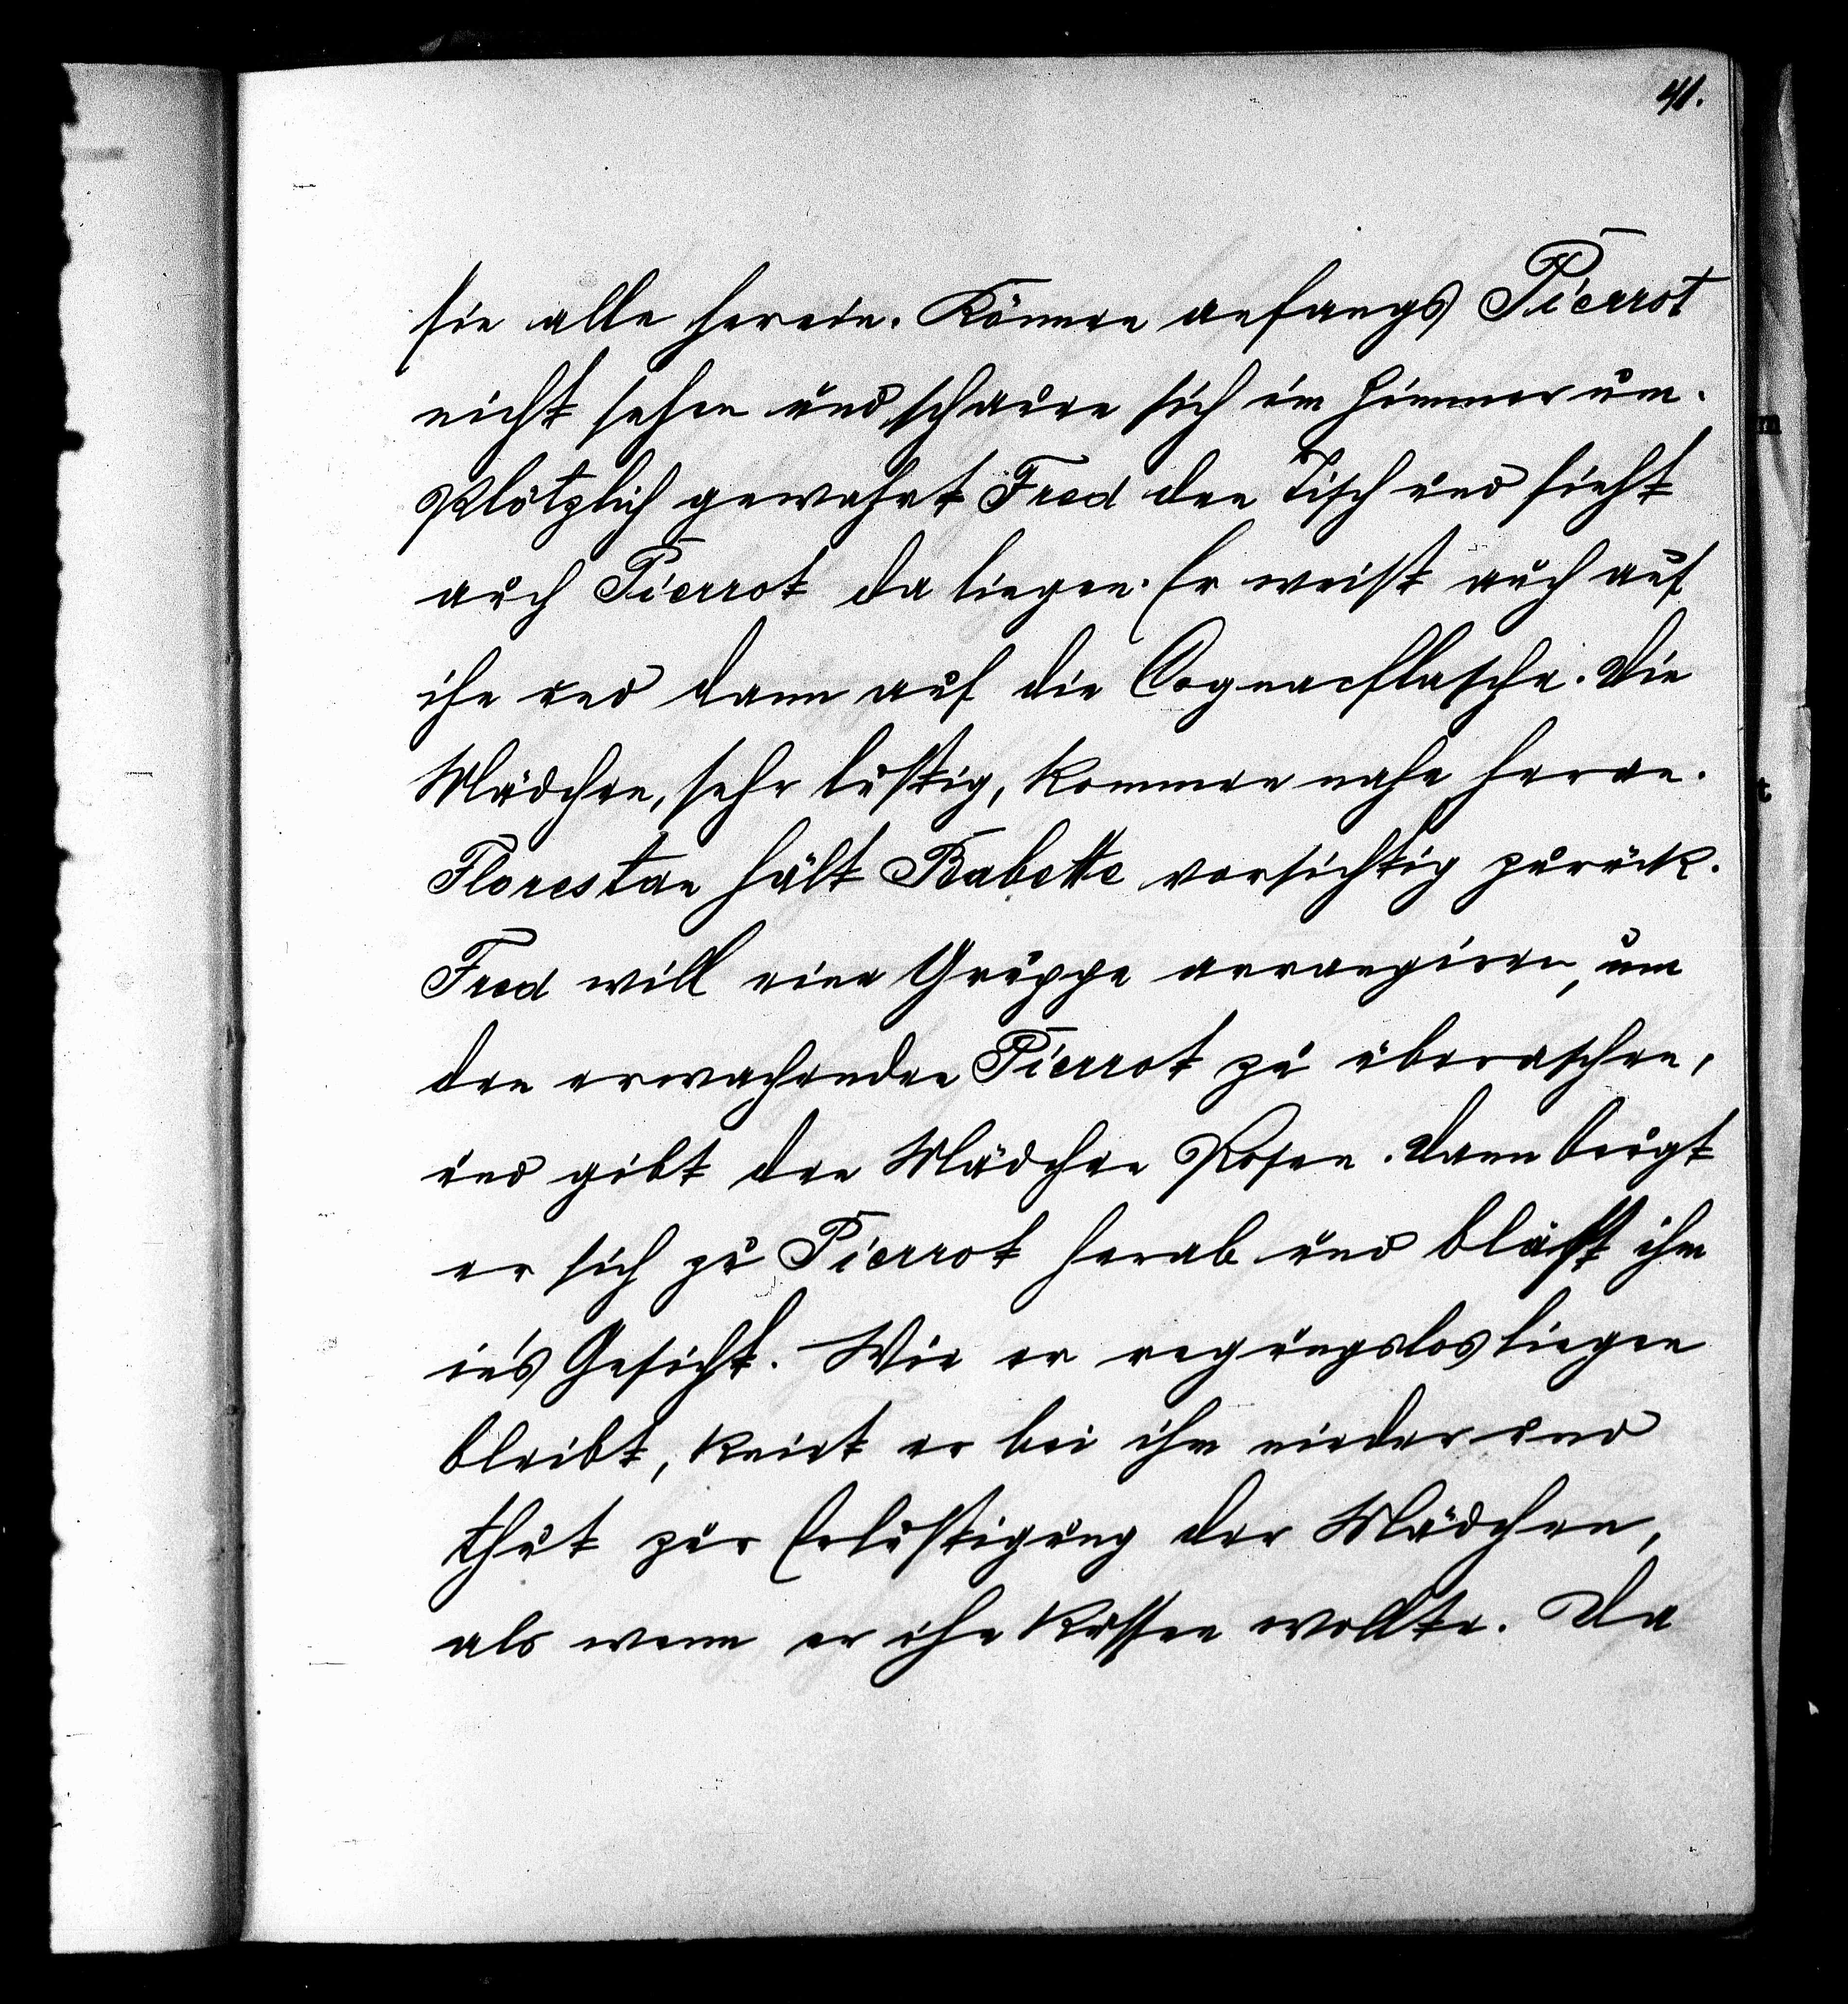 41.
sie alle herein. Können anfangs Pierrot
nicht sehen und schauen sich im Zimmer um.
Plötzlich gewahrt Fred den Tisch und sieht
auch Pierrot da liegen. Er weist auch auf
ihn und dann auf die Cognacflasche. Die
Mädchen, sehr lustig, kommen nahe heran.
Florestan hält Babette vorsichtig zurück.
Fred will eine Gruppe arrangiren, um
den erwachenden Pierrot zu überaschen,
und gibt den Mädchen Rosen. Dann beugt
er sich zu Pierrot herab und bläst ihm
in's Gesicht. Wie er regungslos liegen
bleibt, kniet er bei ihm nieder und
thut zur Erlustigung der Mädchen,
als wenn er ihn küssen wollte. Da